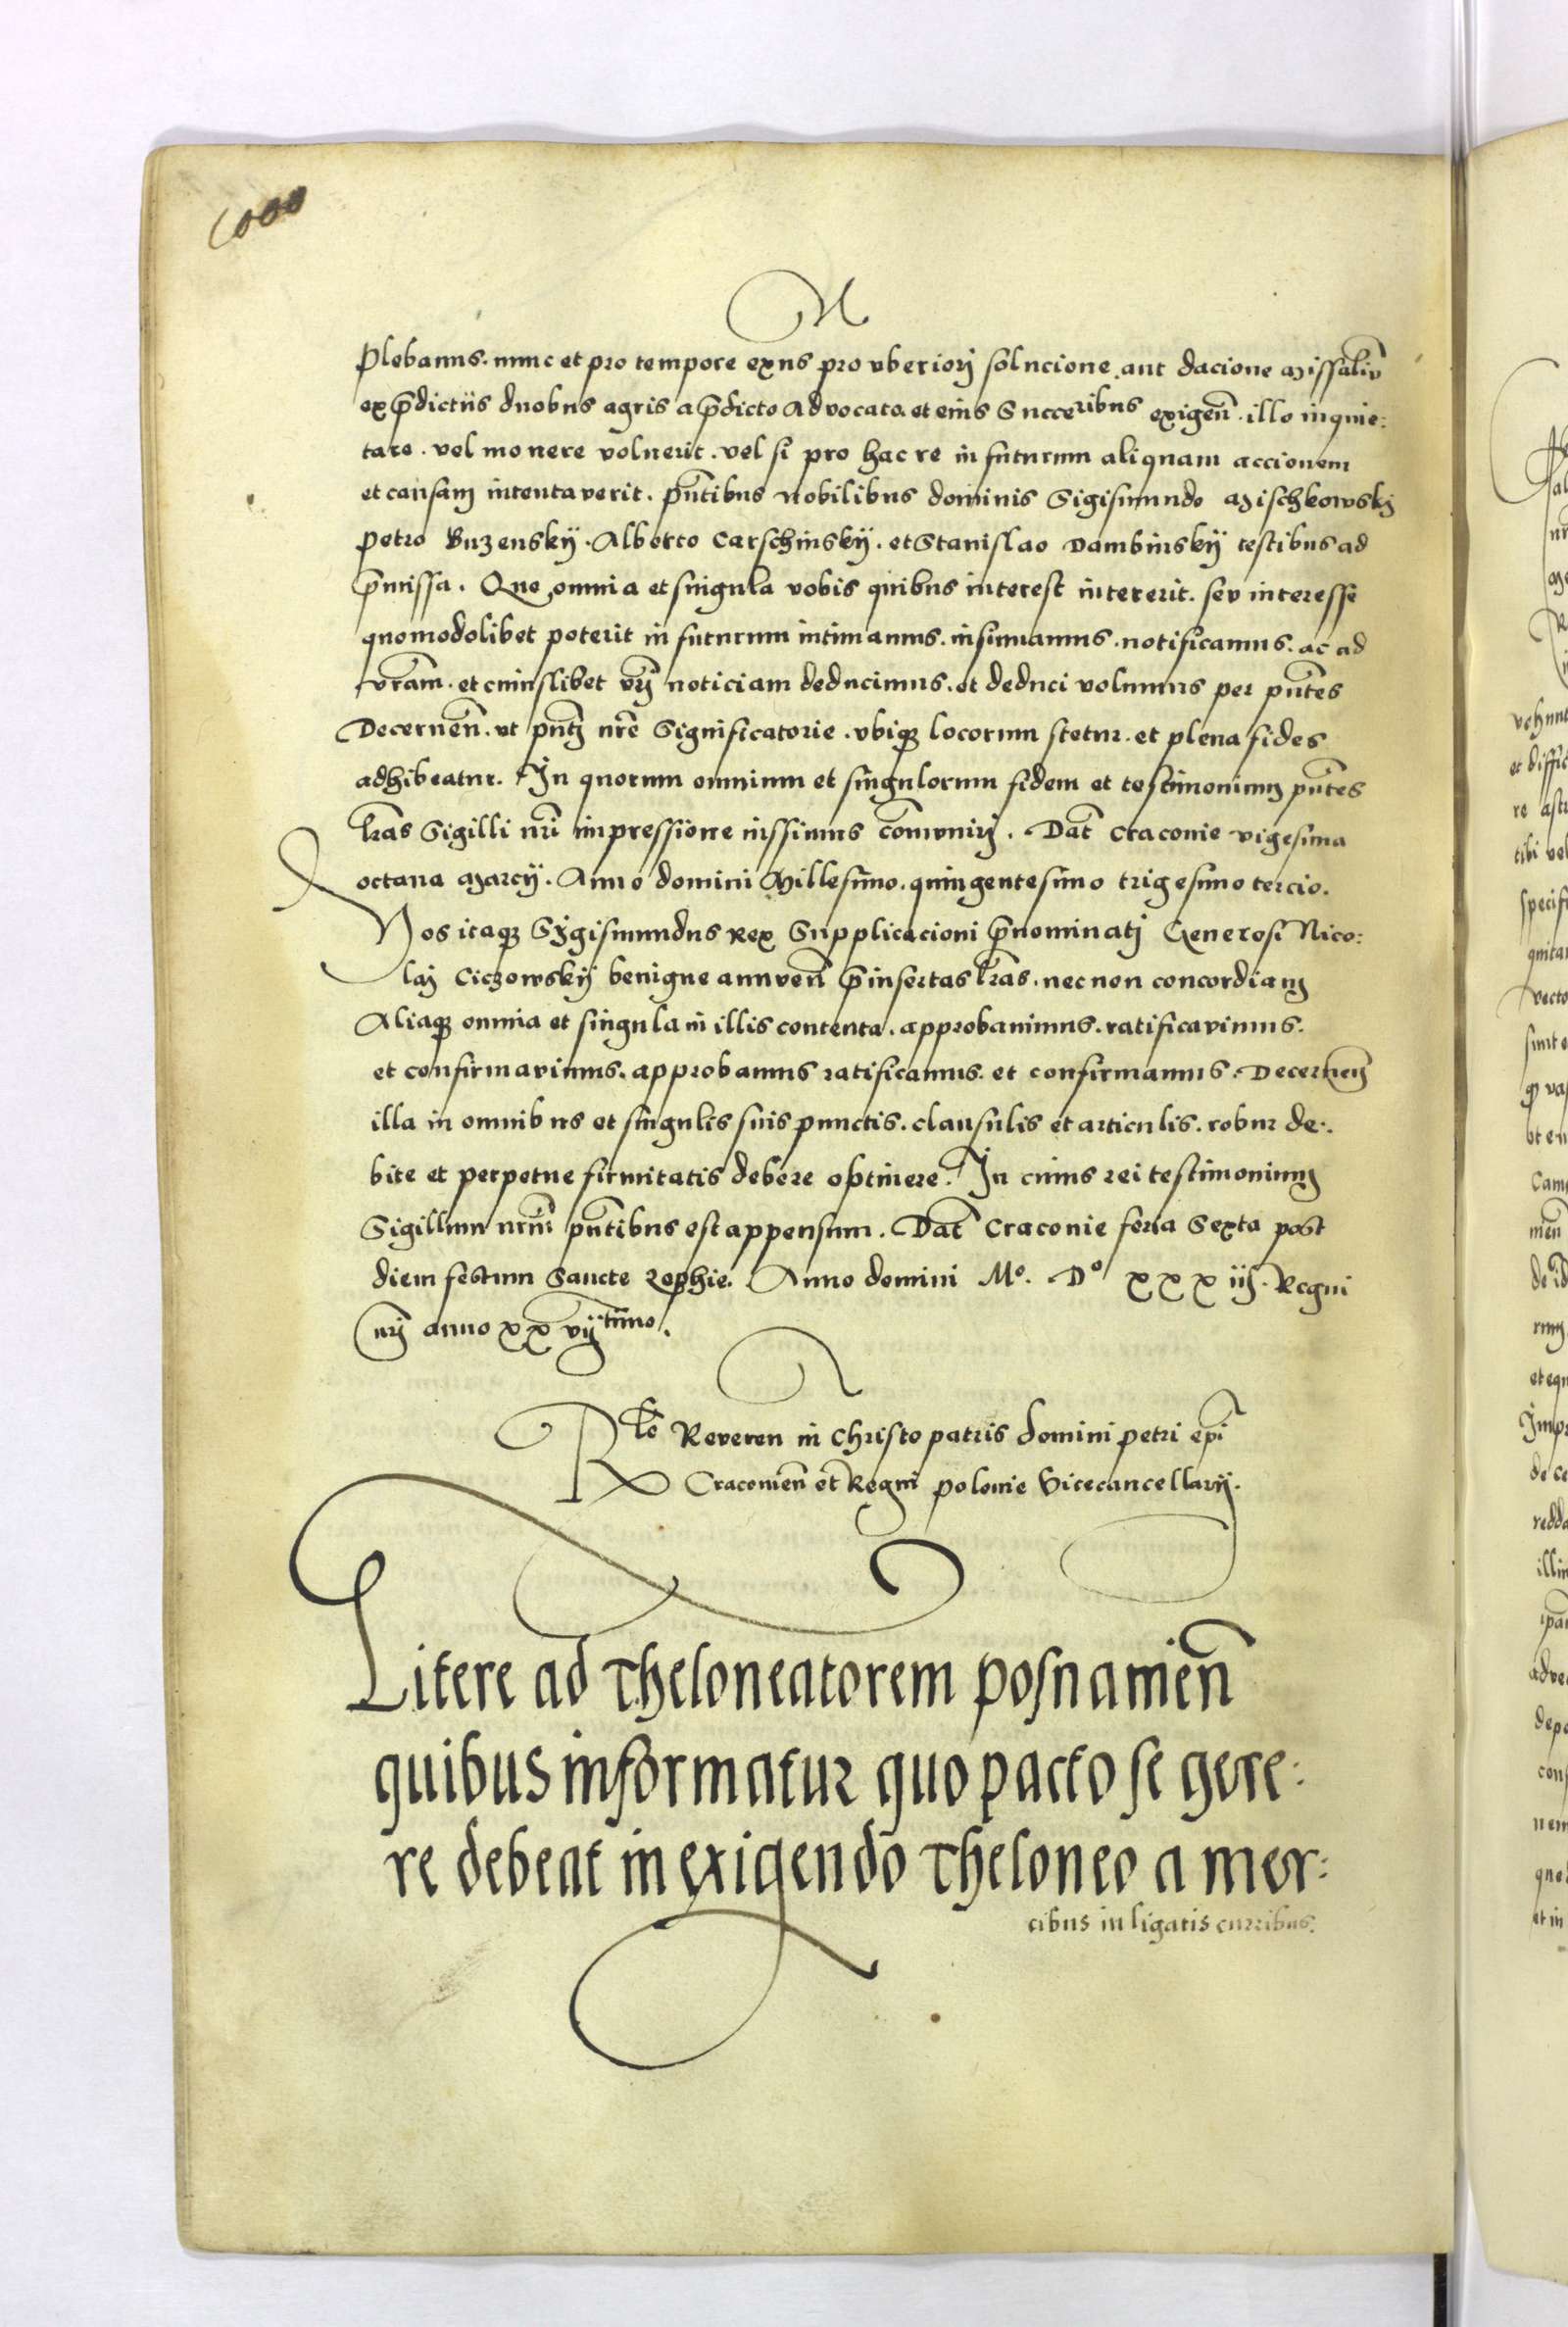 1000
Plebanus. nunc et pro tempore exn̄s pro vberiorj solucione aut dacione Missaliū
ex p̄dictis duobus agris a p̄dicto Advocato. et eius Succeribus exigen̄. illo inquie:
tare. vel monere voluerit. vel si pro hac re in futurum aliquam accionem
et causam intentaverit. pn̄tibus nobilibus dominis Sigismundo Mischkowskÿ
petro Buzenskÿ. Alberto Carschinskÿ. et Stanislao Dambinskÿ testibus ad
p̄missa. Que omnia et singula vobis quibus interest intererit. sev interesse
quomodolibet poterit in futurum intimamus. insinuamus. notificamus. ac ad
vr̄am. et cuiuslibet vrī noticiam deducimus. et deduci volumus per pn̄tes
Decernen̄. vt pn̄tj nr̄e Significatorie. vbiqꝫ locorum stetur. et plena fides
adhibeatur. In quorum omnium et singulorum fidem et testimonium pn̄tes
lr̄as Sigilli nr̄i impressione iussimus com̄unirj. Dat̄ Craconie vigesima
octaua Marcÿ. Anno domini Millesimo. quingentesimo trigesimo tercio.
Nos itaqꝫ Sÿgismundus Rex Supplicacioni p̄nominatj Generosi Nico:
laj Ciczowskÿ benigne annuen̄ p̄insertas lr̄as. nec non concordiam
Aliaqꝫ omnia et singula in illis contenta. approbauimus. ratificavimus.
et confirmavimus. approbamus ratificamus. et confirmamus. Decernen̄
illa in omnibus et singulis suis punctis. clausulis et articulis. robur de:
bite et perpetue firmitatis debere optinere. In cuius rei testimonium
Sigillum nr̄um pn̄tibus est appensum. Dat̄ Craconie feria Sexta post
diem festum Sancte Zophie. Anno domini Mº. Dº xxxiij. Regni
nr̄j anno xxvijtimo.
Rlō Reveren in Christo patris domini petri ep̄i
Craconien̄ et Regni polonie Vicecancellarij.
Litere ad Theloneatorem posnamien̄
quibus informatur quo pacto se gere:
re debeat in exigendo Theloneo a mer:
cibus in ligatis curribus.